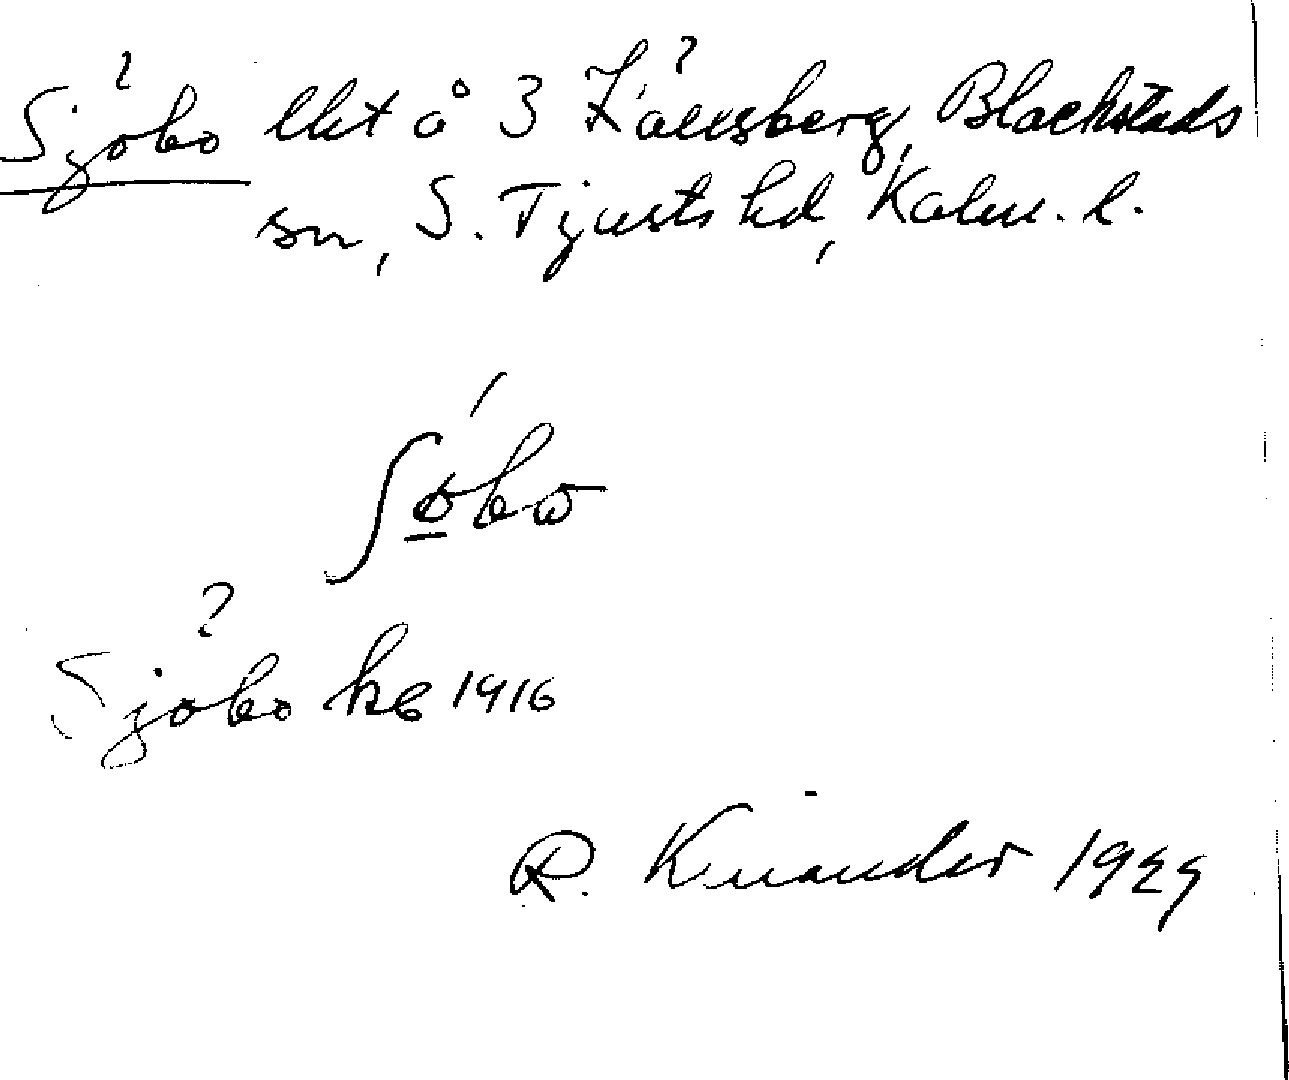 Sjöbo lht å 3 Källsberg, Blackstads
sn, S. Tjusts hd, Kalm. l.
Sjöbo hb 1916
R. Kinander 1929